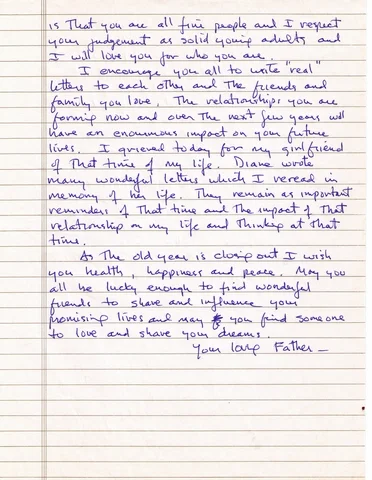 is That you are all fine people and I respect
your judgement as solid young adults and
I will love you for who you are.
I encourage you all to write "real"
letters to each other and The friends and
family you love. The relationships you are
forming now and over The next few years will
have an enoumous impact on your future
lives. I grieved today for my girlfriend
of That time of my life. Diane wrote
many wonderful letters which I reread in
memory of her life. They remain as important
reminders of That time and The impact of That
relationship on my life and Thinking at That
time.
As The old year is closing out I wish
you health, happiness and peace. May you
all be lucky enough to find wonderful
friends to share and influence your
promising lives and may you find someone
to love and share your dreams.
Your loving Father –